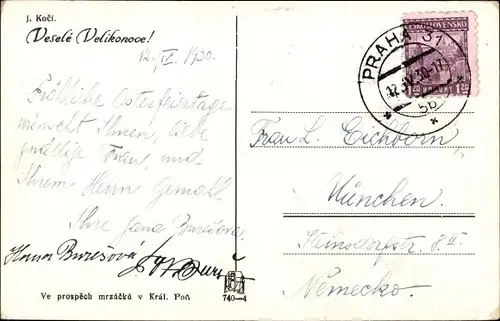 J. Kočí.
Veselé Velikonoce!
12. IV. 1930.
Fröhliche Osterfeiertage
wünscht Ihnen, liebe
gnädige Frau, und
Ihrem Herrn Gemahl
Ihre Jana Burešová
Hana Burešová
Ve prospěch mrzáčků v Král. Poli
740-4
ČESKOSLOVENSKO
PRAHA 31
12.IV.30-17
5b
Frau L. Eichborn,
München.
Steinsdorfstr. 8 II
Německo.